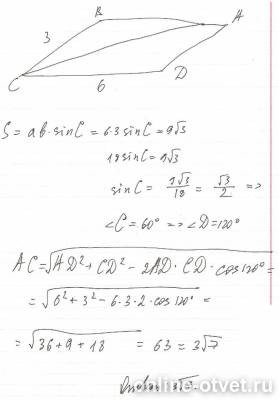 B
A
3
C
6
D
S = ab·sinC = 6·3 sinC = 9√3
18 sinC = 9√3
sinC = 9√3/18 = √3/2 =>
∠C = 60° => ∠D = 120°
AC = √AD² + CD² - 2AD·CD·cos120° =
= √6² + 3² - 6·3·2·cos120° =
= √36 + 9 + 18 = 63 = 3√7
Ответ: 3√7.
online-otvet.ru